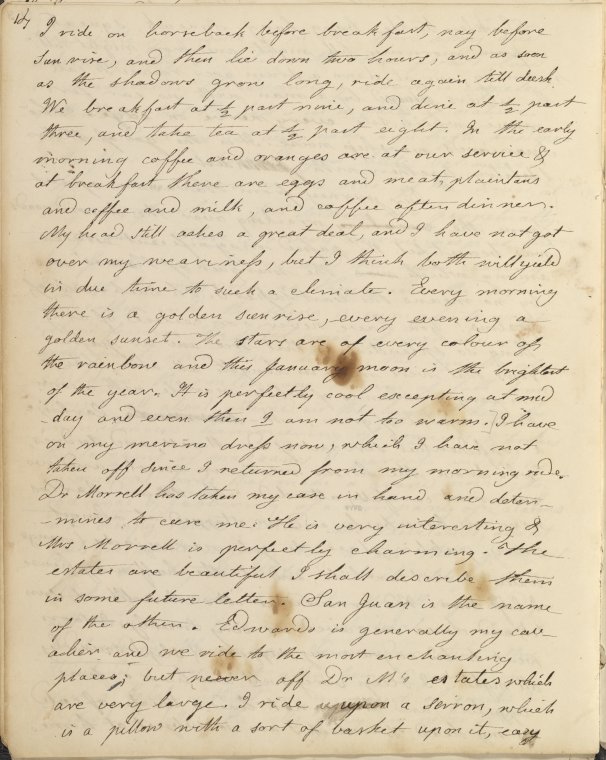 187
I ride on horseback before breakfast, nay before
sun rise, and then lie down two hours, and as soon
as the shadows grow long, ride again till dusk.
We breakfast at ½ past nine, and dine at ½ past
three, and take tea at ½ past eight. In the early
morning coffee and oranges are at our service &
at breakfast there are eggs and meat, plaintans
and coffee and milk, and coffee after dinner.
My head still aches a great deal, and I have not got
over my weariness, but I think both will yield
in due time to such a climate. Every morning
there is a golden sunrise, every evening a
golden sunset. The stars are of every colour of
the rainbow and this January moon is the brightest
of the year. It is perfectly cool excepting at mid
-day and even then I am not too warm. I have
on my merino dress now, which I have not
taken off since I returned from my morning ride.
Dr Morrell has taken my case in hand and deter-
-mines to cure me. He is very interesting &
Mrs Morrell is perfectly charming. The
estates are beautiful I shall describe them
in some future letter. San Juan is the name
of the other. Edwards is generally my cav-
-alier and we ride to the most enchanting
places; but never off Dr M's estates which
are very large. I ride upon a serron, which
is a pillow with a sort of basket upon it, easy